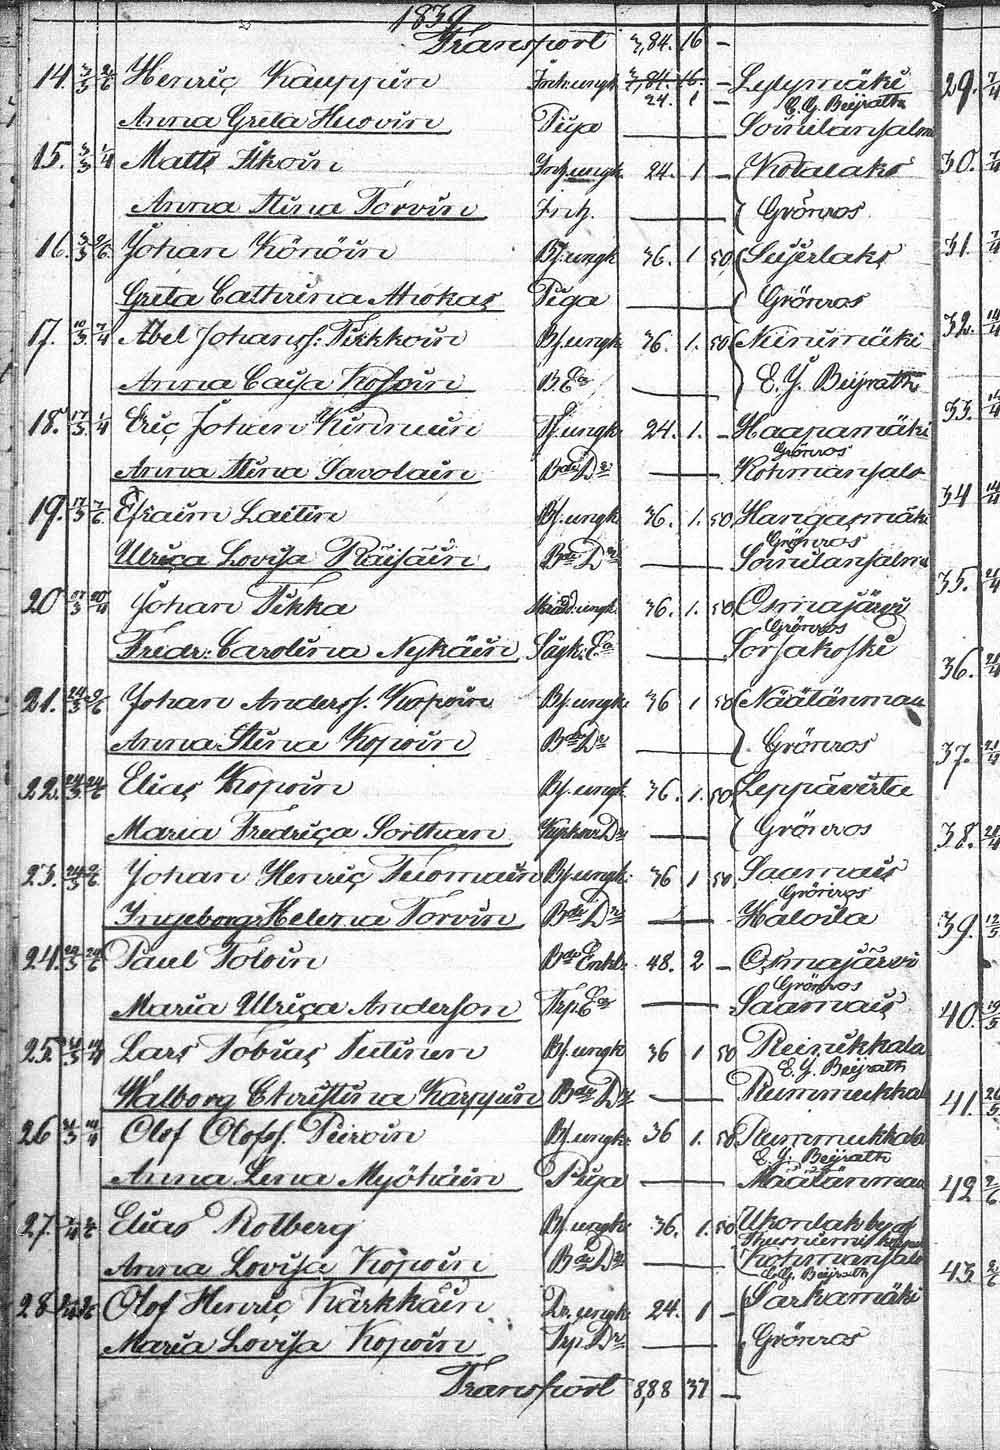 1839
Transport 3,84. 16 –
14. 3/3 2/6 Henric Kauppin Inh: ungk. 3,84. 16. – Lylymäki
24. 1 – E. G. Beijrath
Anna Greta Husvin Piga Soinilansalm
15. 3/3 1/4 Matts Ikoin Inh. ungk 24. 1 – Kotalaks
Anna Stina Torvin Inh. Grönros
16. 3/3 9/6 Johan Könöin Bf. ungk 36. 1. 50 Suserlaks
Greta Cathrina Ahokas Piga Grönros
17. 10/3 7/4 Abel Johanss: Pirkkoin Bf. ungk 36. 1. 50 Niinimäki
Anna Caisa Kosoin B. Ea E. G. Beijrath
18. 17/3 1/4 Eric Johan Kinnuin ungk 24. 1. – Haapamäki
Grönros
Anna Stina Savolain Bde Dr Kohmansalo
19. 17/3 7/6 Efraim Laitin Bf. ungk 36. 1. 50 Kangasmäki
Grönros
Ulrica Lovisa Räisäin Bde Dr Soinilansalmi
20 17/3 20/4 Johan Pikka ungk. 36. 1. 50 Osmajärvi
Grönros
Fredr: Carolina Nykäin Ea Sorsakoski
21. 24/3 9/6 Johan Anderss. Kopoin Bf. ungk. 36 1 50 Näätänmaa
Anna Stina Kopoin Bde Dr Grönros
22. 24/3 24/6 Elias Kopoin Bf. ungk. 36. 1. 50 Leppävirta
Maria Fredrica Sorthan Dr Grönros
23. 24/3 9/6 Johan Henric Tuomain Bf. ungk. 36 1 50 Saamais
Grönros
Ingeborg Helena Torvin Bde Dr Halola
24. 24/3 24/6 Paul Toloin Bde Enkl. 48. 2 – Osmajärvi
Grönros
Maria Ulrica Anderson Trp. Ea Saamais
25. 31/3 14/4 Lars Tobias Tutinen Bf. ungk 36 1 50 Reinikkala
E. G. Beijrath
Walborg Christina Kauppin Bde Dr Rummukkala
26 31/3 14/4 Olof Olofss. Puroin Bf. ungk. 36 1. 50 Rummukkala
E. G. Beijrath
Anna Lena Myöhäin Piga Näätänmaa
27. 7/4 Elias Rotberg Bf. ungk. 36. 1. 50
Anna Lovisa Kopoin Bde Dr Kohmansalo
E. G. Beijrath
28 Olof Henric Kärkkäin Dr. ungk 24. 1 – Sarkamäki
Maria Lovisa Kopoin Trp. Dr Grönros
Transport 8,88 37 –
29. 7/4
30. 7/4
31. 7/4
32. 14/4
33. 14/4
34 14/4
35. 21/4
36. 21/4
37. 21/4
38. 21/4
39. 12/5
40. 19/5
41. 26/5
42 2/6
43 2/6